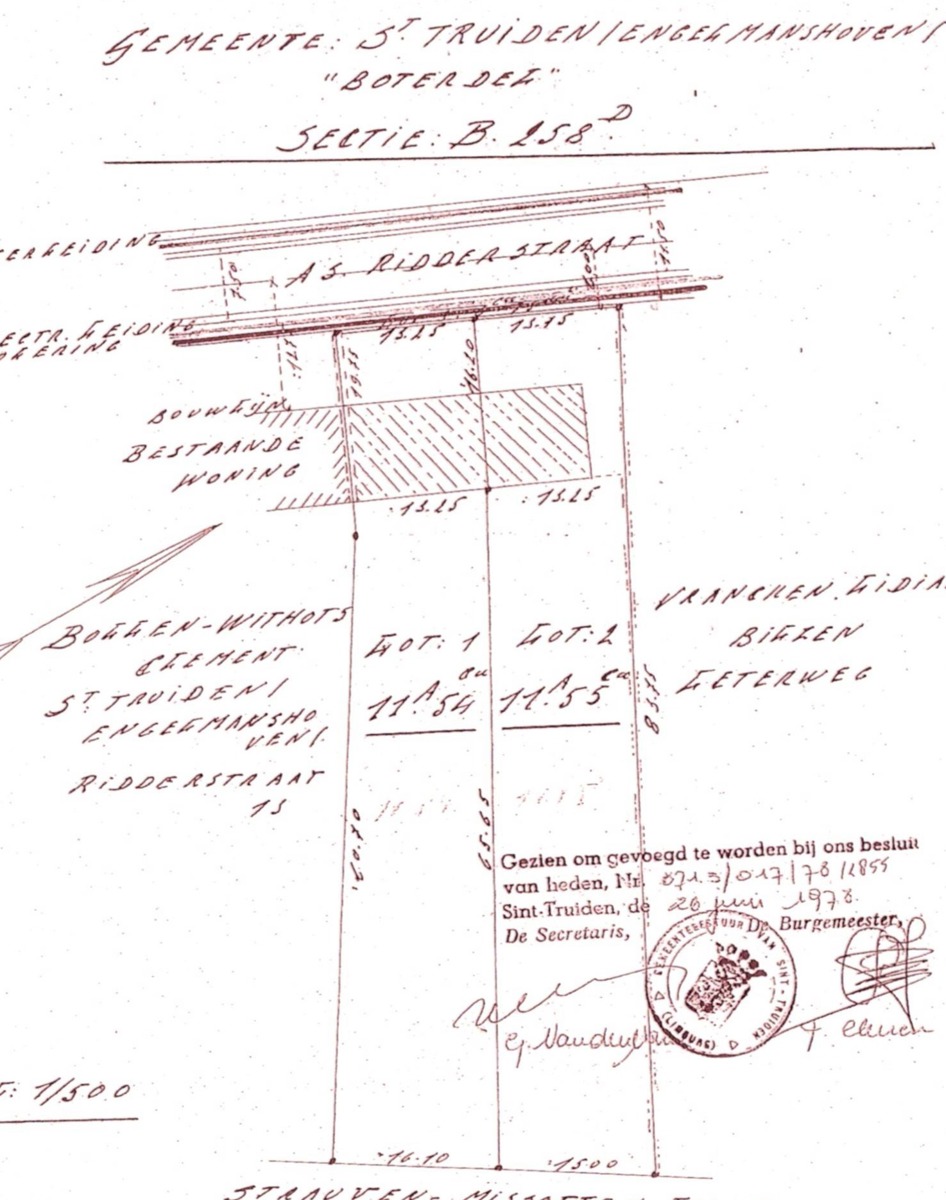 GEMEENTE: ST TRUIDEN/ENGELMANSHOVEN/
"BOTERDEL"
SECTIE: B. 258 D
AS RIDDERSTRAAT
7.50
5.00
11.10
13.25 13.75
16.20
BOUWLIJN
BESTAANDE
WONING
13.25 13.25
BOLLEN-WITHOFS
CLEMENT.
ST TRUIDEN/
ENGELMANSHO
VEN/.
RIDDERSTRAAT
15
LOT: 1 LOT: 2
11A 54 ca 11A 55 ca
VRANCKEN. LIDIA
BILZEN
LETERWEG
83.75
60.70
65.65
Gezien om gevoegd te worden bij ons besluit
van heden, Nr. 8713/017/78/1855
Sint-Truiden, de 26 juni 1978.
De Secretaris, De Burgemeester,
GEMEENTEBESTUUR VAN SINT-TRUIDEN (LIMBURG)
1/500
16.10 15.00